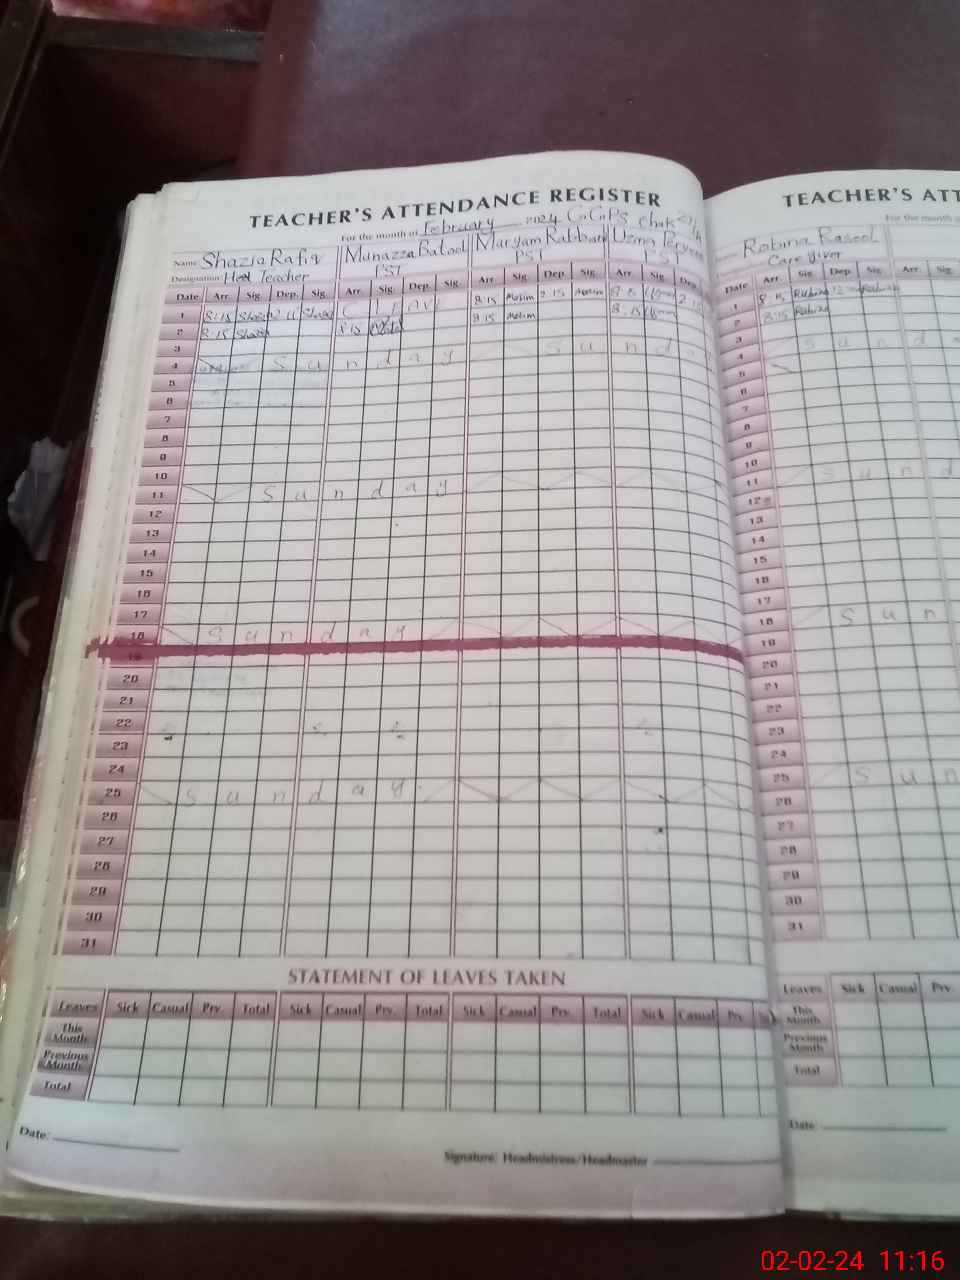 TEACHER'S ATTENDANCE REGISTER
For the month of February 2024 G.G.P.S Chak
Name Shazia Rafiq Munazza Batool Maryam Rabbani Uzma Parveen
Designation Head Teacher PST PST PST
Date Arr. Sig. Dep. Sig. Arr. Sig. Dep. Sig. Arr. Sig. Dep. Sig. Arr. Sig. Dep.
1 8:15 Shazia Shazia C LEAVE 8:15 2:15 8:15 2:15
2 8:15 Shazia 8:15 8:15 8:15
3
4 Sunday Sund
5
6
7
8
9
10
11 Sunday
12
13
14
15
16
17
18 Sunday
19
20
21
22
23
24
25 Sunday
26
27
28
29
30
31
STATEMENT OF LEAVES TAKEN
Leaves Sick Casual Prv. Total Sick Casual Prv. Total Sick Casual Prv. Total Sick Casual Prv.
This Month
Previous Month
Total
Date:
Signature: Headmistress/Headmaster
TEACHER'S ATT
For the month of
Name Robina Rasool
Care giver
Date Arr. Sig. Dep. Sig. Arr. Sig.
1 8:15 Robina Robina
2 8:15 Robina
3
4 Sund
5
6
7
8
9
10
11 Sund
12
13
14
15
16
17
18 Sun
19
20
21
22
23
24
25 Sun
26
27
28
29
30
31
Leaves Sick Casual Prv.
This Month
Previous Month
Total
Date:
02-02-24 11:16